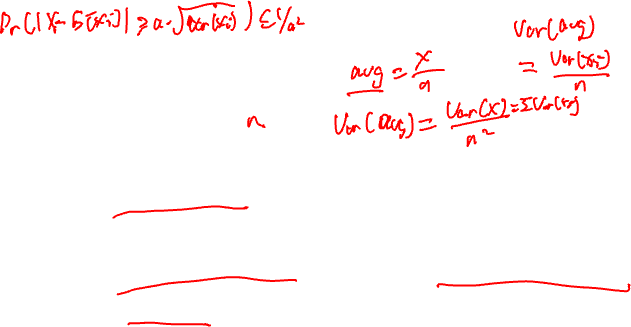 Pr(|Xi - E[Xi]| ≥ a·√Var(Xi)) ≤ 1/a²
Var(avg)
avg = X/n
= Var(Xi)/n
n
Var(avg) = Var(X)/n² = ΣVar(Xi)